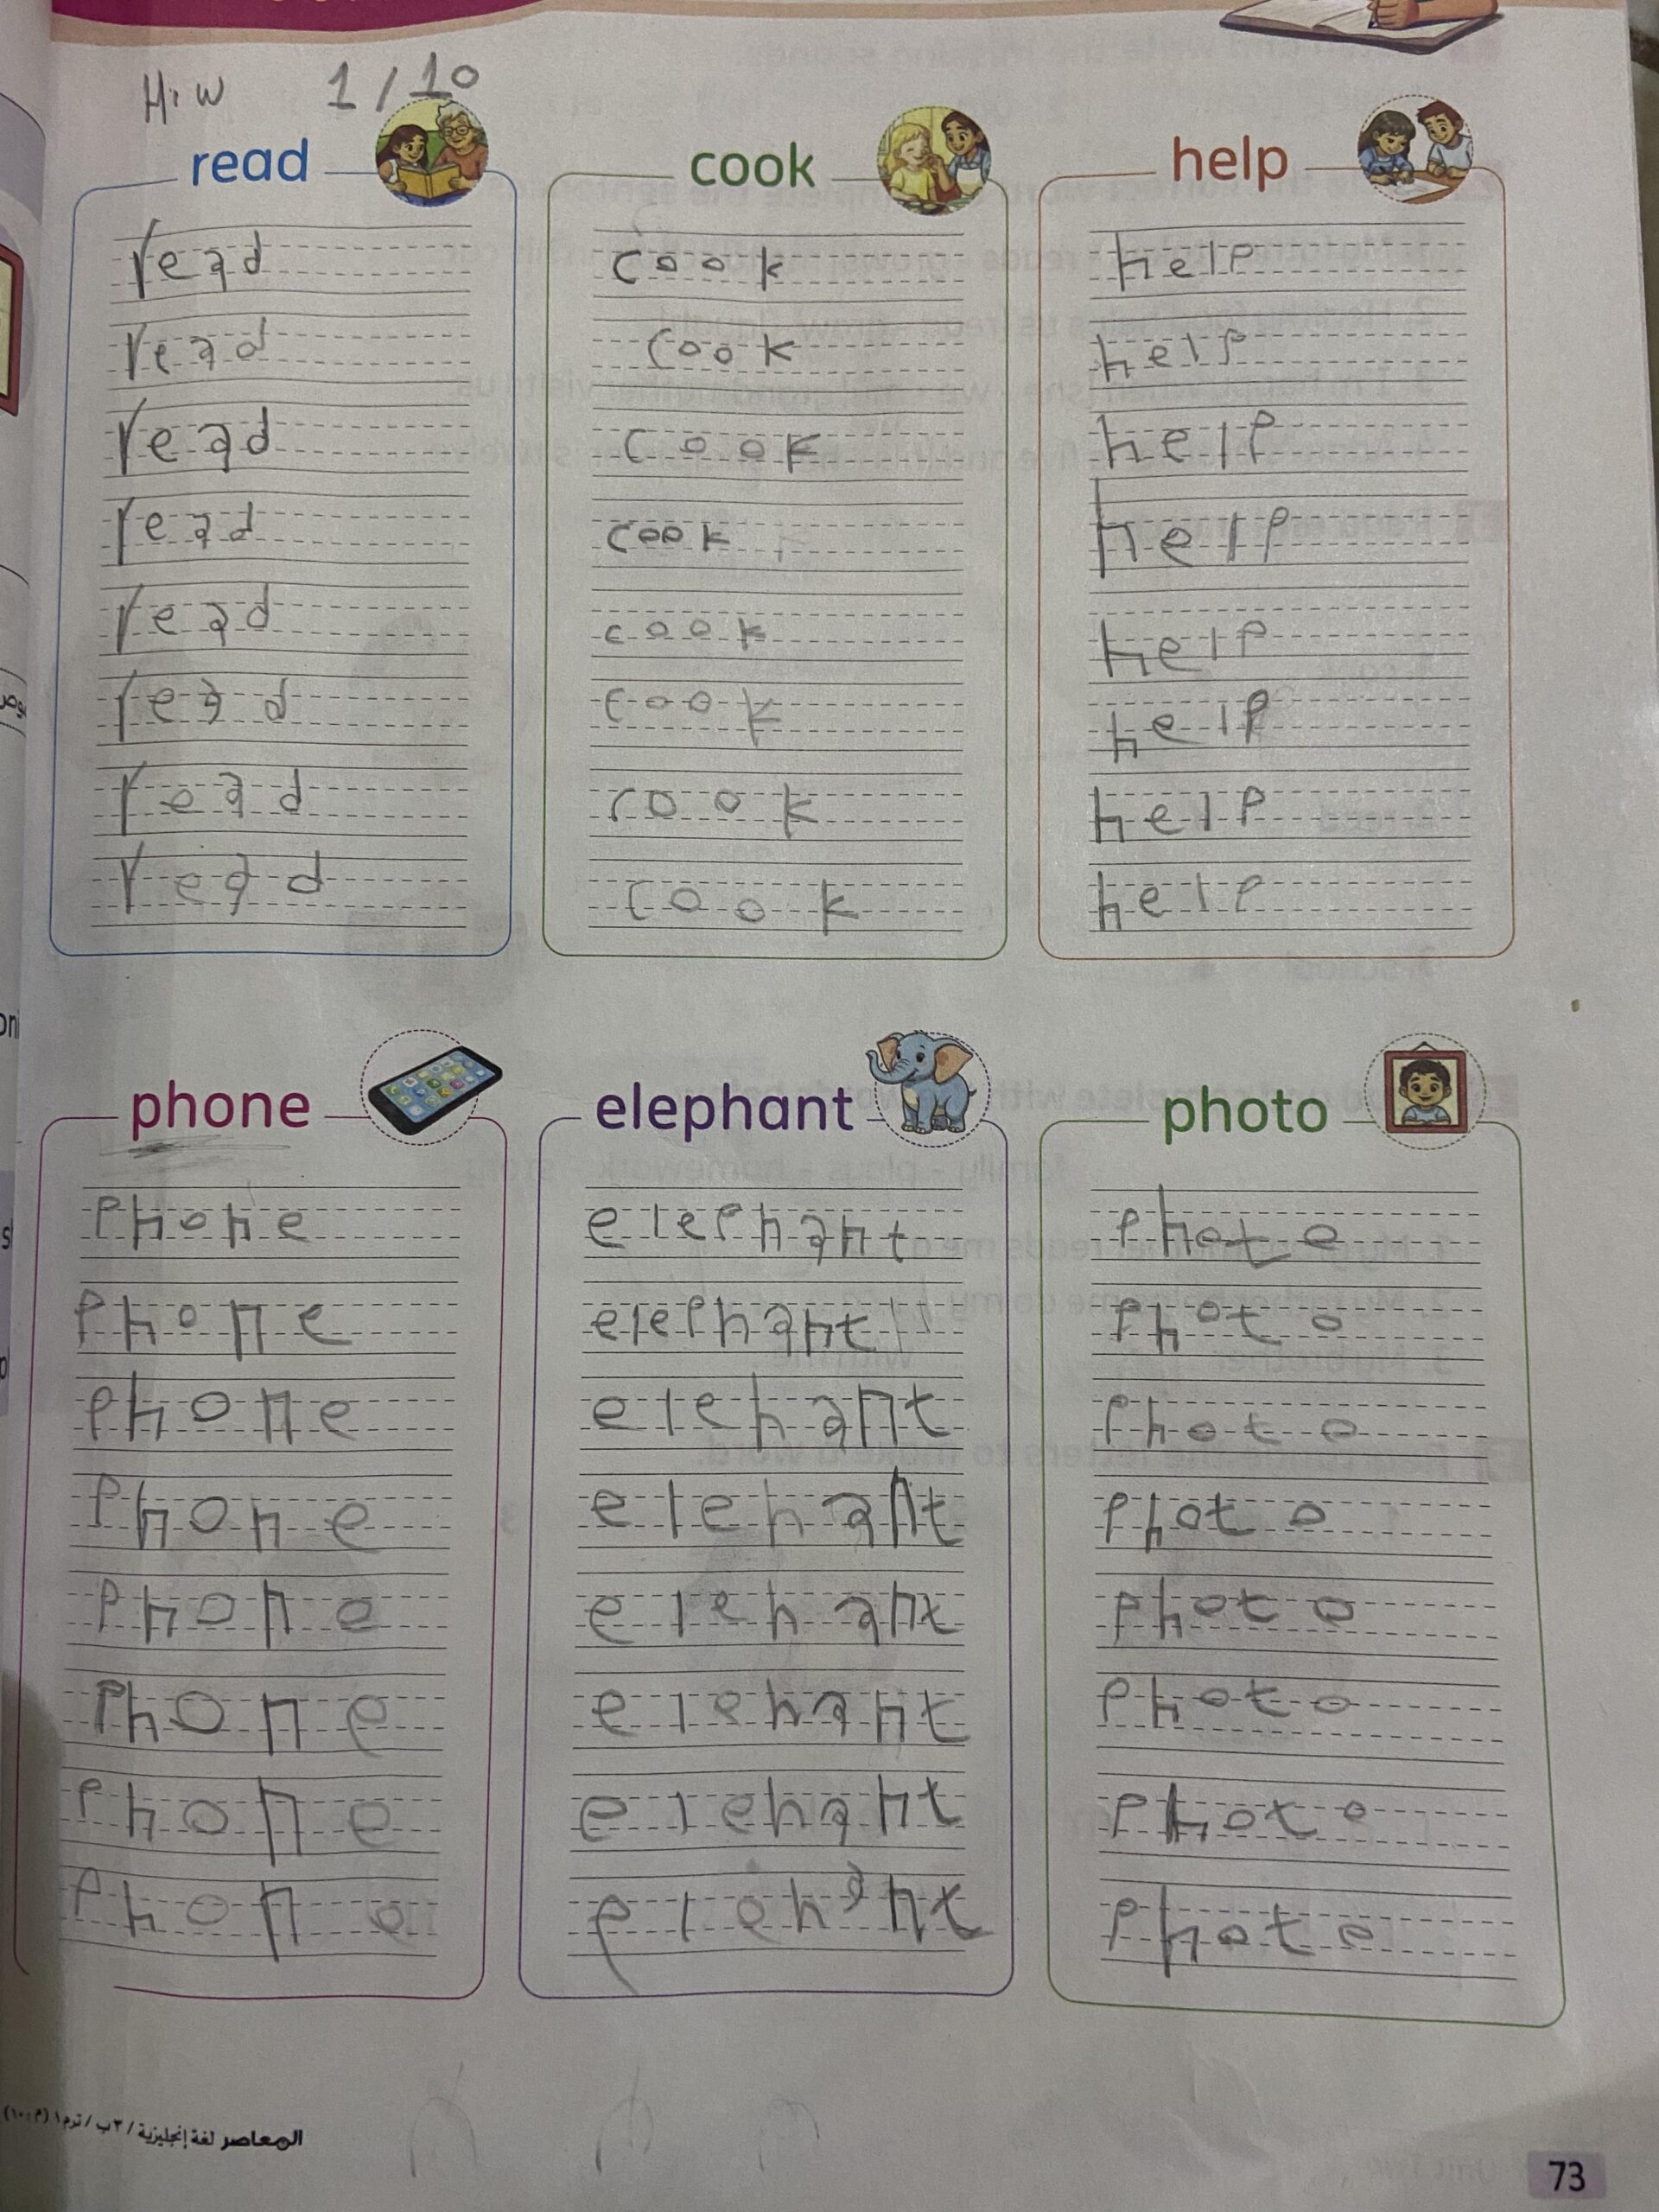 H.w 1/10
read cook help
read cook help
read cook help
read cook help
read cook help
read cook help
read cook help
read cook help
read cook help
phone elephant photo
phone elephant photo
phone elephant photo
phone elehant photo
phone elehant photo
phone elehant photo
phone elehant photo
phone elehant photo
phone elehant photo
المعاصر لغة إنجليزية / ٣ ب / ترم ١ (م: ١٠)
73